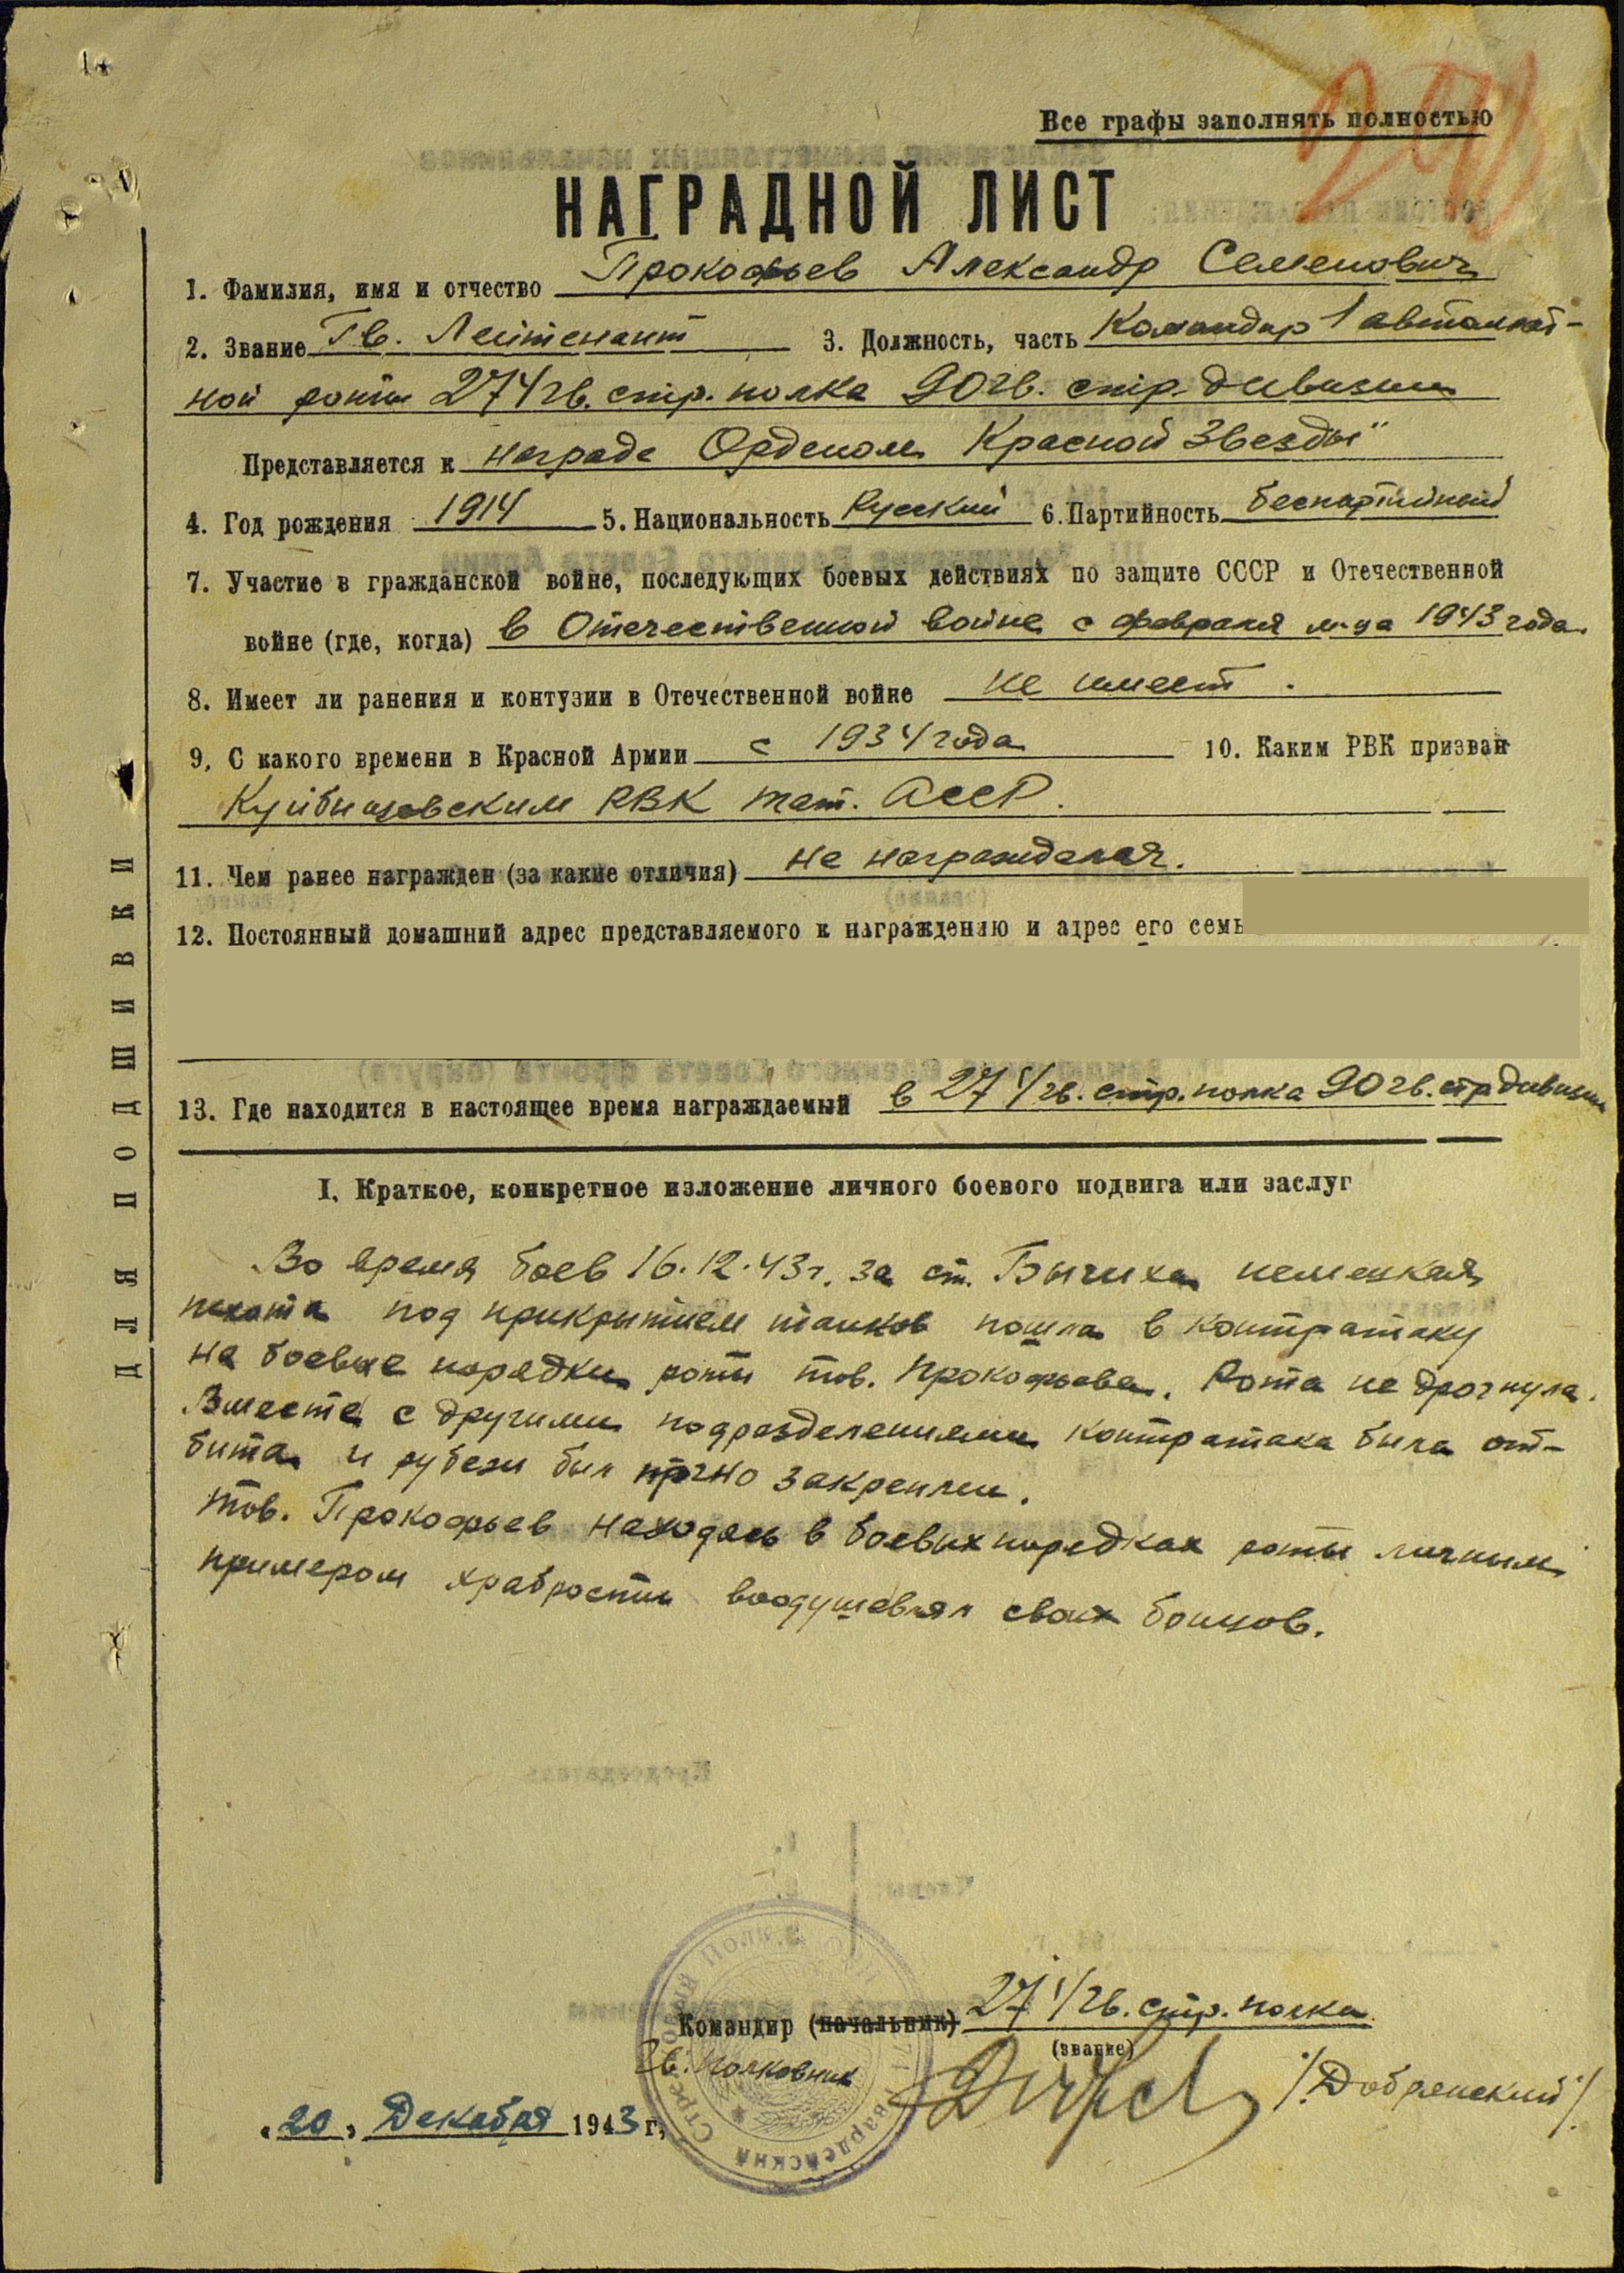 Все графы заполнять полностью
НАГРАДНОЙ ЛИСТ
1. Фамилия, имя и отчество Прокофьев Александр Семенович
2. Звание Гв. Лейтенант 3. Должность, часть Командир 1 автомат-
ной роты 271 гв. стр. полка 90 гв. стр. дивизии
Представляется к награде Орденом Красной Звезды"
4. Год рождения 1914 5. Национальность Русский 6. Партийность беспартийный
7. Участие в гражданской войне, последующих боевых действиях по защите СССР и Отечественной
войне (где, когда) в Отечественной войне с февраля м-ца 1943 года.
8. Имеет ли ранения и контузии в Отечественной войне не имеет.
9. С какого времени в Красной Армии с 1934 года 10. Каким РВК призван
Куйбышевским РВК Тат. АССР.
11. Чем ранее награжден (за какие отличия) не награждался.
12. Постоянный домашний адрес представляемого к награждению и адрес его семь
13. Где находится в настоящее время награждаемый в 271 гв. стр. полка 90 гв. стр дивизии
I. Краткое, конкретное изложение личного боевого подвига или заслуг
Во время боев 16.12.43г. за ст. Бычиха немецкая
пехота под прикрытием танков пошла в контратаку
на боевые порядки роты тов. Прокофьева. Рота не дрогнула.
Вместе с другими подразделениями контратака была от-
бита и рубеж был прочно закреплен.
тов. Прокофьев находясь в боевых порядках роты личным
примером храбрости воодушевлял своих бойцов.
Командир (начальник) 271 гв. стр. полка
(звание)
Гв. полковник /Добрянский/
"20" Декабря 1943 г,
ДЛЯ ПОДШИВКИ